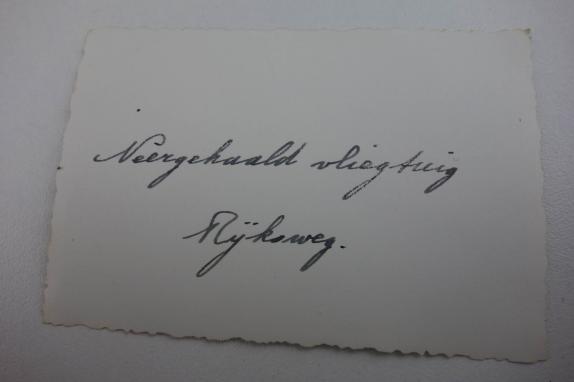 Neergehaald vliegtuig
Rijksweg.